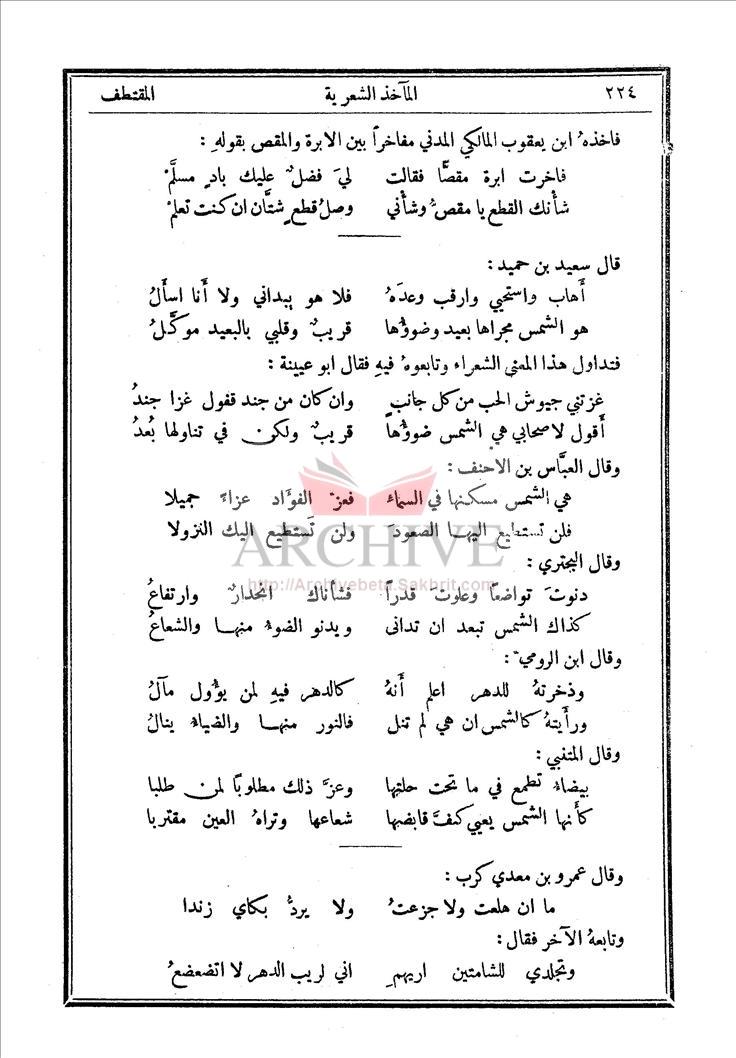 ٢٢٤ المآخذ الشعرية المقتطف
فاخذهُ ابن يعقوب المالكي المدني مفاخراً بين الابرة والمقص بقولهِ :
فاخرت ابرة مقصًّا فقالت ليَ فضلٌ عليك بادٍ مسلَّمْ
شأنك القطع يا مقصُّ وشأني وصلُ قطعٍ شتَّان ان كنت تعلمْ
قال سعيد بن حميد :
أهاب واستحيي وارقب وعدَهُ فلا هو يبداني ولا أنا اسأَلُ
هو الشمس مجراها بعيد وضوؤها قريبٌ وقلبي بالبعيد موكَّلُ
فتداول هذا المعنى الشعراء وتابعوهُ فيهِ فقال ابو عيينة :
غزتني جيوش الحب من كل جانبٍ وان كان من جند قفول غزا جندُ
أقول لاصحابي هي الشمس ضوؤها قريبٌ ولكن في تناولها بُعدُ
وقال العبَّاس بن الاحنف :
هي الشمس مسكنها في السماءِ فعزّ الفؤاد عزاءً جميلا
فلن تستطيع اليها الصعودَ ولن تَستطيع اليك النزولا
ARCHIVE
وقال البحتري :
http://Archivebeta.Sakhrit.com
دنوتَ تواضعاً وعلوتَ قدراً فشأناك انحدارٌ وارتفاعُ
كذاك الشمس تبعد ان تدانى ويدنو الضوءُ منها والشعاعُ
وقال ابن الرومي :
وذخرتهُ للدهر اعلم أنهُ كالدهر فيهِ لمن يؤول مآلُ
ورأيتهُ كالشمس ان هي لم تنل فالنور منها والضياءُ ينالُ
وقال المتنبي :
بيضاءُ تطمع في ما تحت حلتها وعزَّ ذلك مطلوبًا لمن طلبا
كأنها الشمس يعيي كفَّ قابضها شعاعها وتراهُ العين مقتربا
وقال عمرو بن معدي كرب :
ما ان هلعت ولا جزعتُ ولا يردُّ بكاي زندا
وتابعهُ الآخر فقال :
وتجلدي للشامتين اريهمِ اني لريب الدهر لا اتضعضعُ